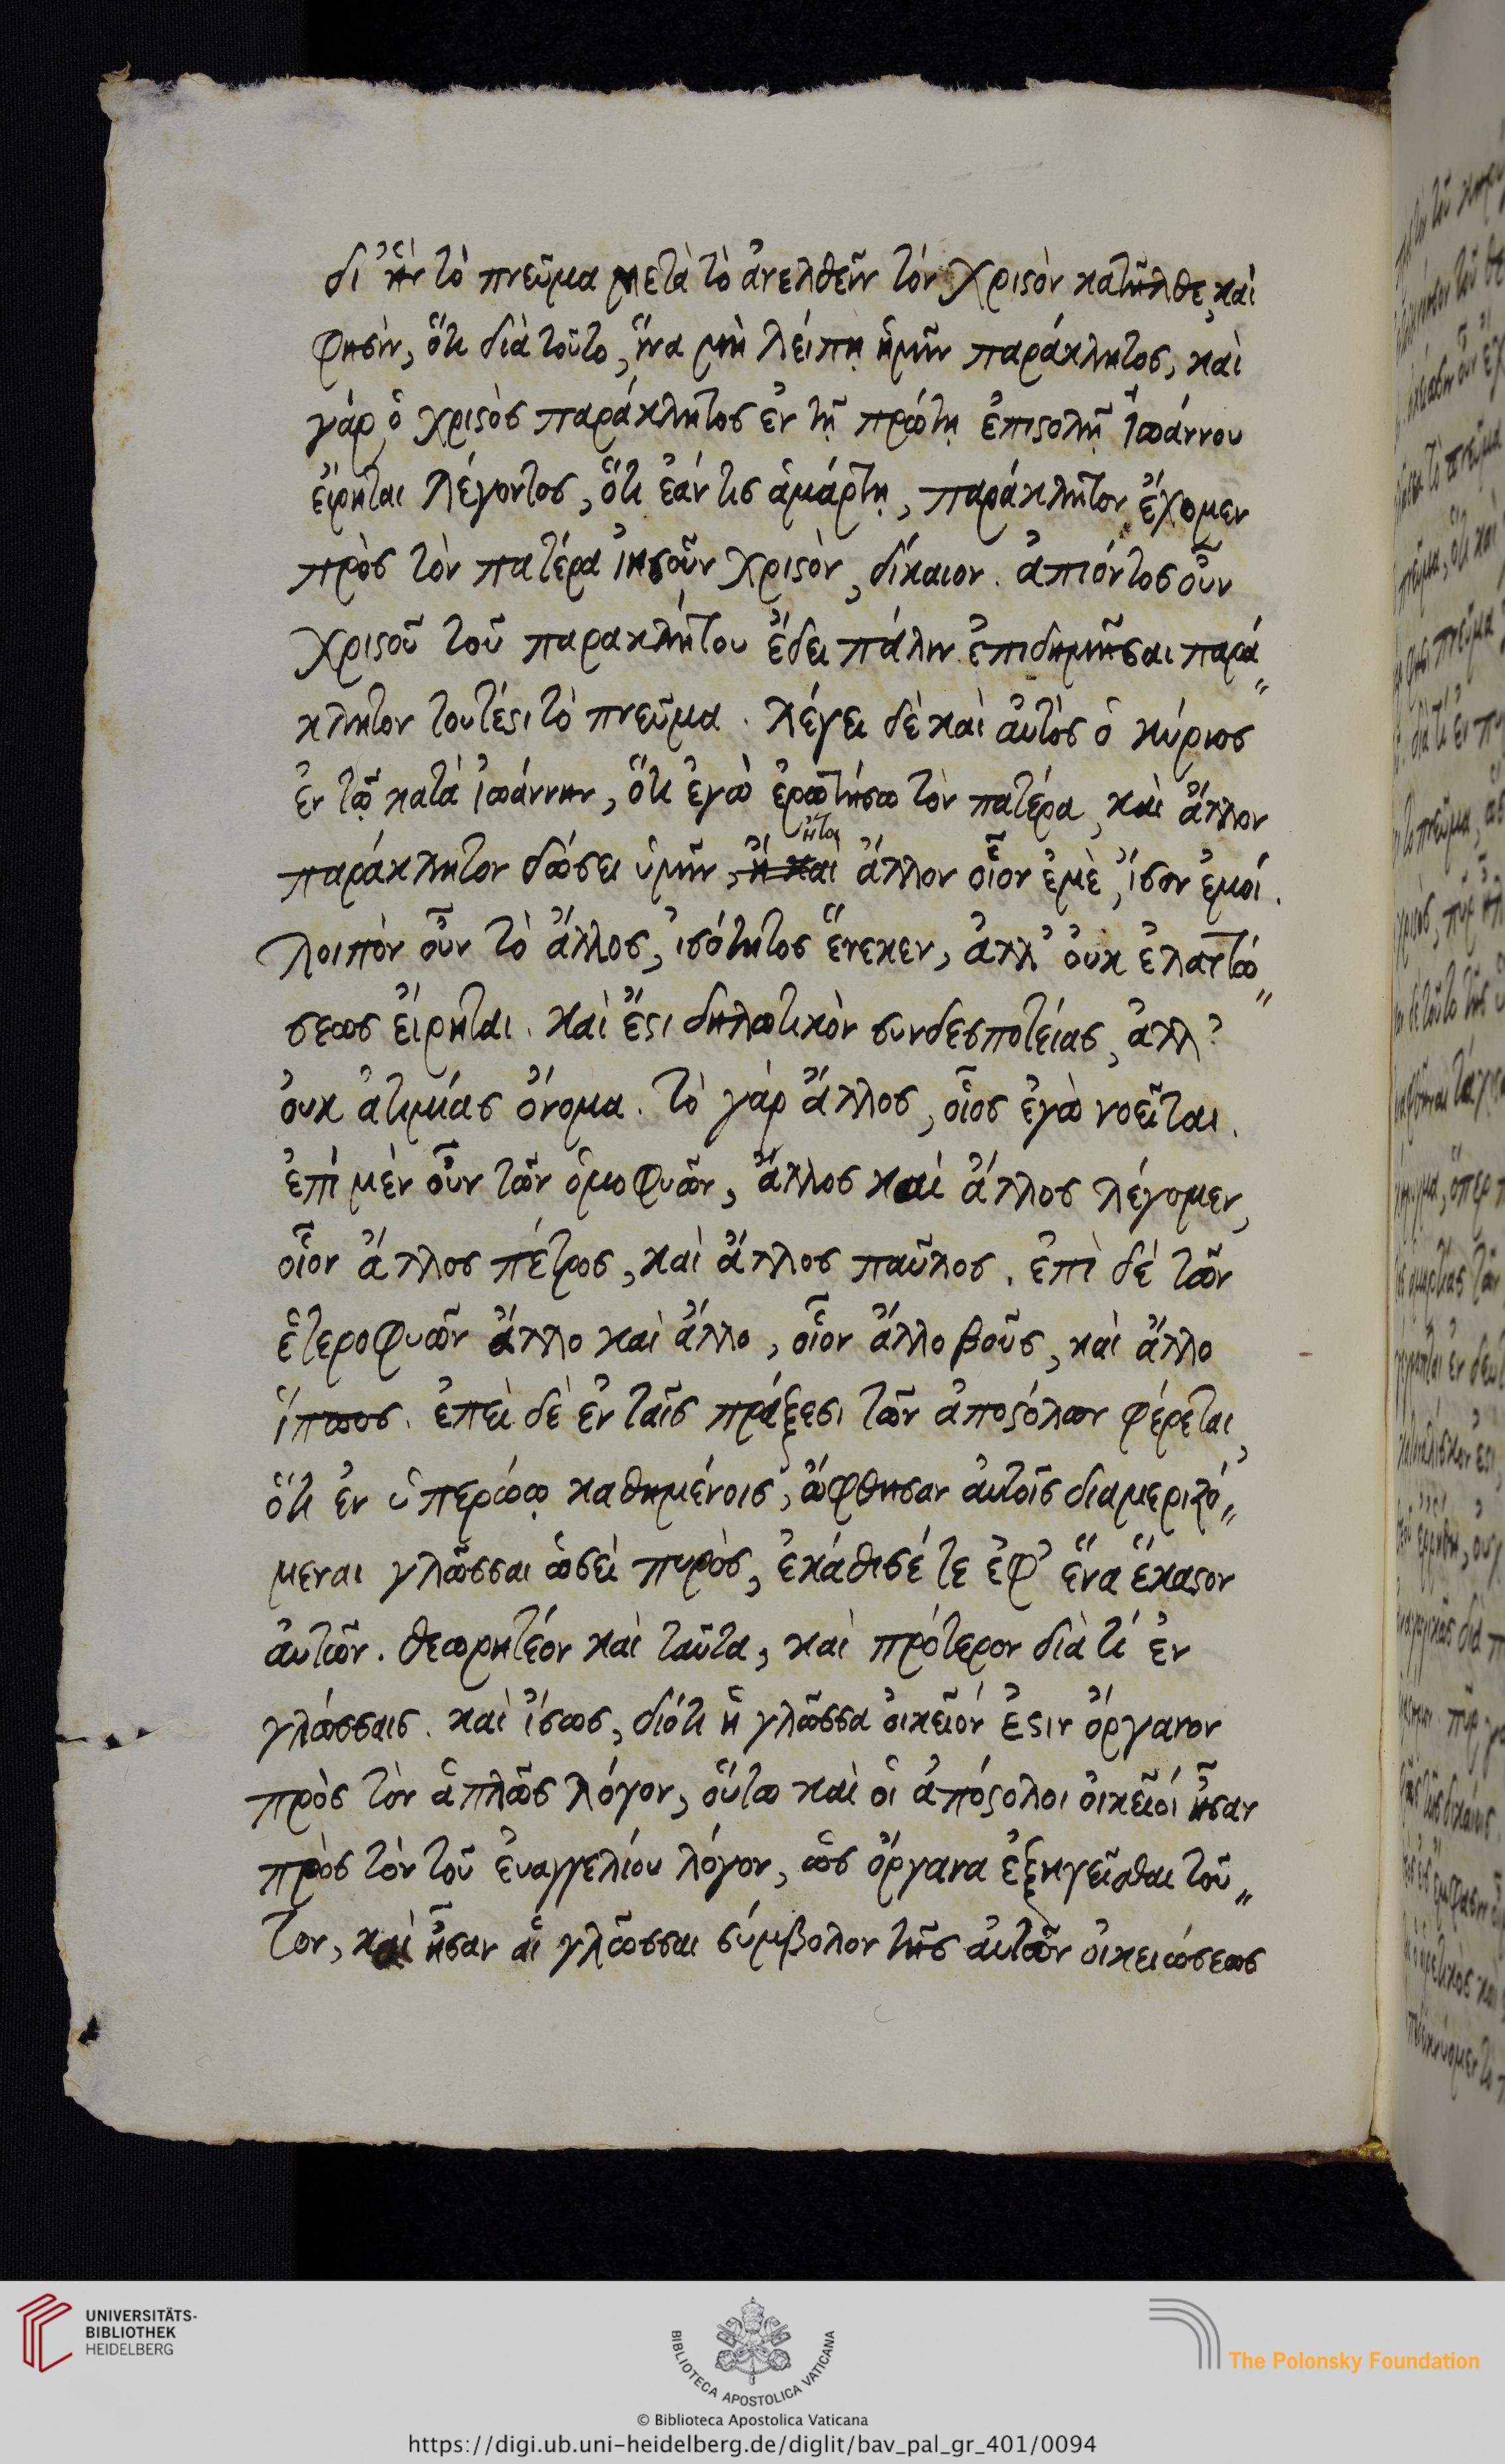 δι ἣν τὸ πνεῦμα μετὰ τὸ ἀνελθεῖν τὸν Χριϛὸν κατῆλθε, καὶ
φησὶν, ὅτι διὰ τοῦτο, ἵνα μὴ λείπῃ ἡμῖν παράκλητος, καὶ
γάρ ὁ χριϛὸς παράκλητος ἐν τῇ πρώτῃ ἐπιϛολῇ Ἰωάννου
εἴρηται λέγοντος, ὅτι ἐάν τις ἁμάρτῃ, παράκλητον ἔχομεν
πρὸς τὸν πατέρα ἰησοῦν χριϛὸν, δίκαιον. ἀπιόντος οὖν
χριϛοῦ τοῦ παρακλήτου ἔδει πάλιν ἐπιδημῆσαι παρά„
κλητον τουτέϛι τὸ πνεῦμα. λέγει δὲ καὶ αὐτὸς ὁ κύριος
ἐν τῷ κατὰ ἰωάννην, ὅτι ἐγὼ ἐρωτήσω τὸν πατέρα, καὶ ἄλλον
ἤτοι
παράκλητον δώσει ὑμῖν, ἢ καὶ ἄλλον οἷον ἐμὲ, ἴσον ἐμοί.
λοιπὸν οὖν τὸ ἄλλος, ἰσότητος ἕνεκεν, ἀλλ' οὐκ ἐλαττώ„
σεως εἴρηται. καὶ ἔϛι δηλωτικὸν συνδεσποτείας, ἀλλ'
οὐκ ἀτιμίας ὄνομα. τὸ γὰρ ἄλλος, οἷος ἐγὼ νοεῖται.
ἐπὶ μὲν οὖν τῶν ὁμοφυῶν, ἄλλος καὶ ἄλλος λέγομεν,
οἷον ἄλλος πέτρος, καὶ ἄλλος παῦλος. ἐπὶ δὲ τῶν
ἑτεροφυῶν ἄλλο καὶ ἄλλο, οἷον ἄλλο βοῦς, καὶ ἄλλο
ἵππος. ἐπεὶ δὲ ἐν ταῖς πράξεσι τῶν ἀποϛόλων φέρεται,
ὅτι ἐν ὑπερώῳ καθημένοις, ὤφθησαν αὐτοῖς διαμεριζό„
μεναι γλῶσσαι ὡσεὶ πυρὸς, ἐκάθισέ τε ἐφ' ἕνα ἕκαϛον
αὐτῶν. θεωρητέον καὶ ταῦτα, καὶ πρότερον διὰ τί ἐν
γλώσσαις. καὶ ἴσως, διότι ἡ γλῶσσα οἰκεῖόν ἐϛιν ὄργανον
πρὸς τὸν ἁπλῶς λόγον, οὕτω καὶ οἱ ἀπόϛολοι οἰκεῖοί ἦσαν
πρὸς τὸν τοῦ ἐυαγγελίου λόγον, ὡς ὄργανα ἐξηγεῖσθαι τοῦ„
τον, καὶ ἦσαν αἱ γλῶσσαι σύμβολον τῆς αὐτῶν οἰκειώσεως
UNIVERSITÄTS-
BIBLIOTHEK
HEIDELBERG
BIBLIOTECA APOSTOLICA VATICANA
The Polonsky Foundation
© Biblioteca Apostolica Vaticana
https://digi.ub.uni-heidelberg.de/diglit/bav_pal_gr_401/0094